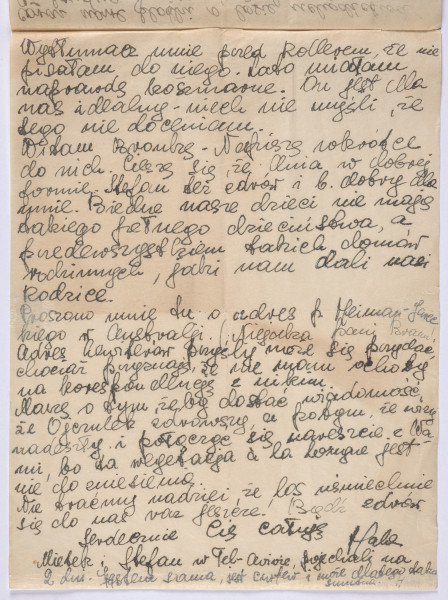 Wytłumacz mnie przed Adlerem, że nie
pisałam do niego. Lato miałam
naprawdę koszmarne. On jest dla
nas idealny - niech nie myśli, że
tego nie doceniam.
Witam Bronkę - Napiszę wkrótce
do nich. Cieszę się, że Ania w dobrej
formie. Stefan też zdrów i b. dobry dla
mnie. Biedne nasze dzieci nie mają
takiego pełnego dzieciństwa, a
przedewszystkiem takich domów
rodzinnych, jaki nam dali nasi
rodzice.
Proszono mnie tu o adres p. Heiman
kiego w Australji. (
Adres przyślij może się przydać
chociaż przyznaję, że nie mam ochoty
na korespondencję z nikim.
Marzę o tym żeby dostać wiadomość,
że Ojczulek zdrowszy, a potym, że wizy
nadeszły i połączyć się nareszcie z Wa-
mi, bo ta wegetacja à la longue jest
nie do zniesienia.
Nie traćmy nadziei, że los uśmiechnie
się do nas raz jeszcze. Bądź zdrów
Serdecznie Cię całuję
Hala
Mietek i Stefan w Tel-Avivie, pojechali na
2 dni. Jestem sama, jest i może dlatego taka
smutna.